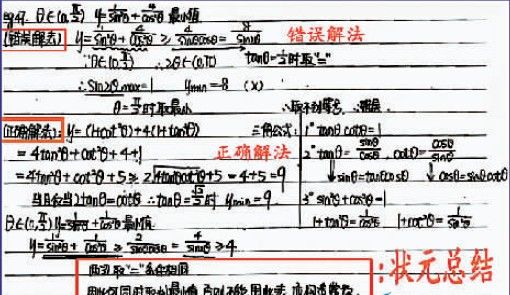 eg47. θ∈(0,π/2) y=1/sin²θ+4/cos²θ 最小值
(错误解法) y=1/sin²θ+4/cos²θ ≥ 4/sinθcosθ=8/sin2θ 错误解法
∵θ∈(0,π/2) ∴2θ∈(0,π) tanθ=1/2时取"="
∴sin2θmax=1 ymin=8 (×)
θ=π/4时取最小
(正确解法): y=(1+cot²θ)+4(1+tan²θ) 三角公式: 1° tanθcotθ=1
正确解法
=4tan²θ+cot²θ+4+1 2° tanθ=sinθ/cosθ, cotθ=cosθ/sinθ
=4tan²θ+cot²θ+5≥2√4tan²θcot²θ+5=4+5=9 ↓sinθ=tanθcosθ ↓cosθ=sinθcotθ
当且仅当2tanθ=cotθ ∴tanθ=√2/2时 ymin=9. 3° sin²θ+cos²θ=1
θ∈(0,π/2) y=1/sin²θ+1/cos²θ最小值 1+tan²θ=1/cos²θ 1+cot²θ=1/sin²θ
y=1/sin²θ+1/cos²θ≥2/sinθcosθ=4/sin2θ≥4
两次取"="条件相同
:状元总结